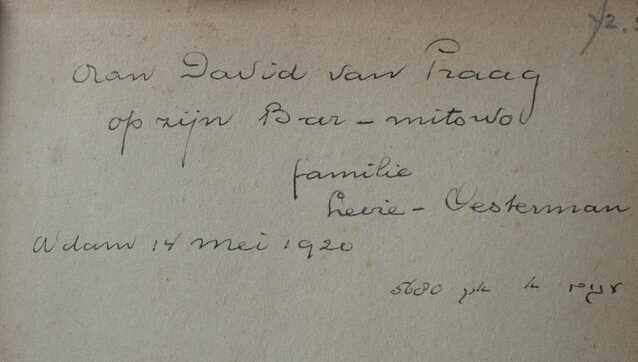 Aan David van Praag
op zijn Bar-mitswo
familie
Levie-Oesterman
A'dam 14 mei 1920
5680